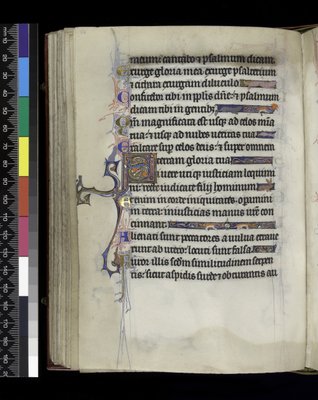 meum: cantabo & psalmum dicam.
Exurge gloria mea, exurge psalterium
& cithara: exurgam diluculo
Confitebor tibi in pplis dñe: & psalmum
dicam tibi in gentibz
Qm̃ magnificata est usqz ad celos mĩa
tua: & usqz ad nubes ueritas tua
Exaltare sup celos deus: & super omnem
terram gloria tua
Si uere utiqz iusticiam loqueminj
recte iudicate filij hominum
Etenim in corde iniquitates opamini
in terra: iniusticias manus ur̃e con
cinnant
Alienati sunt peccatores a uulua errauerunt
ab utero: locuti sunt falsa
Furor illis scd̃m similitudinem serpen
tis: sicut aspidis surde & obturantis au